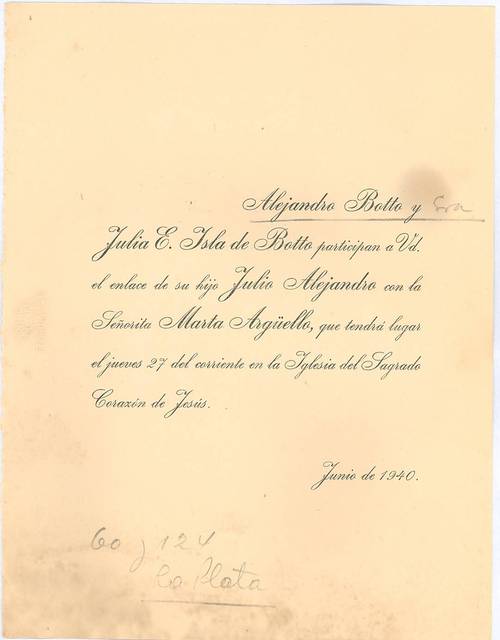 Alejandro Botto y Sra
Julia E. Isla de Botto participan a Vd.
el enlace de su hijo Julio Alejandro con la
Señorita Marta Argüello, que tendrá lugar
el jueves 27 del corriente en la Iglesia del Sagrado
Corazón de Jesús.
Junio de 1940.
60 y 124
La Plata